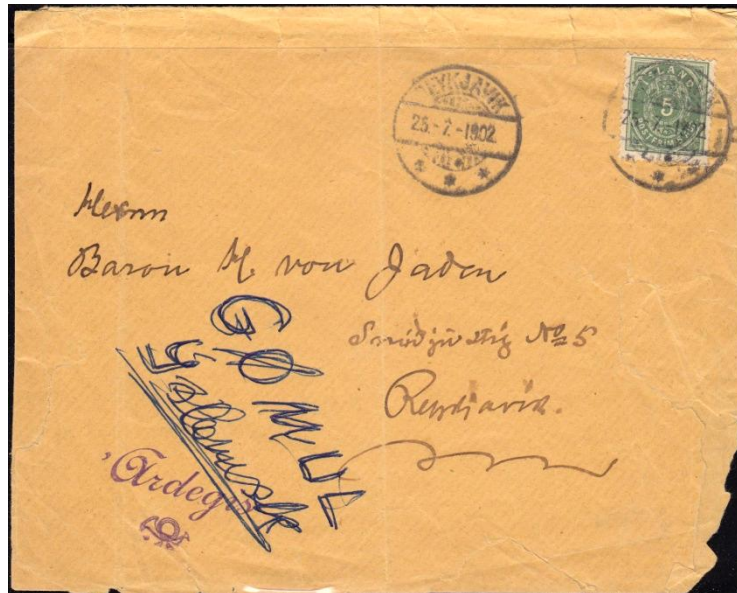 REYKJAVIK
25.-7.-1902
ISLAND
5
Herrn
Baron H. von Jaden
Smiðjustig No 5
Reykjavik.
GØMUL
Islensk
Árdegis